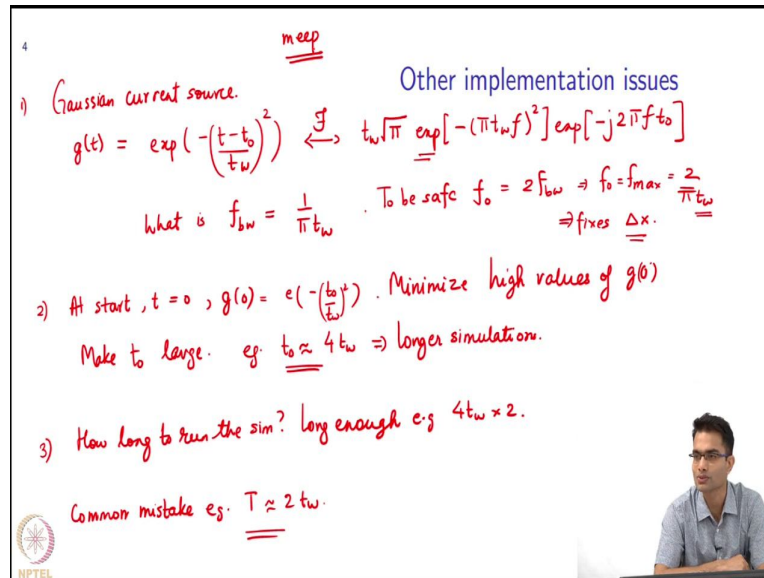 4
meep
Other implementation issues
1) Gaussian current source.
g(t) = exp(-((t-t₀)/t_w)²) ⟷ ℱ t_w√π exp[-(πt_w f)²] exp[-j2πft₀]
What is f_bw = 1/πt_w . To be safe f₀ = 2f_bw ⇒ f₀ = f_max = 2/πt_w
⇒ fixes Δx.
2) At start, t = 0, g(0) = e(-(t₀/t_w)²) . Minimize high values of g(0)
Make t₀ large. eg. t₀ ≈ 4t_w ⇒ longer simulation.
3) How long to run the sim? Long enough e.g 4t_w × 2.
Common mistake eg. T ≈ 2t_w.
NPTEL